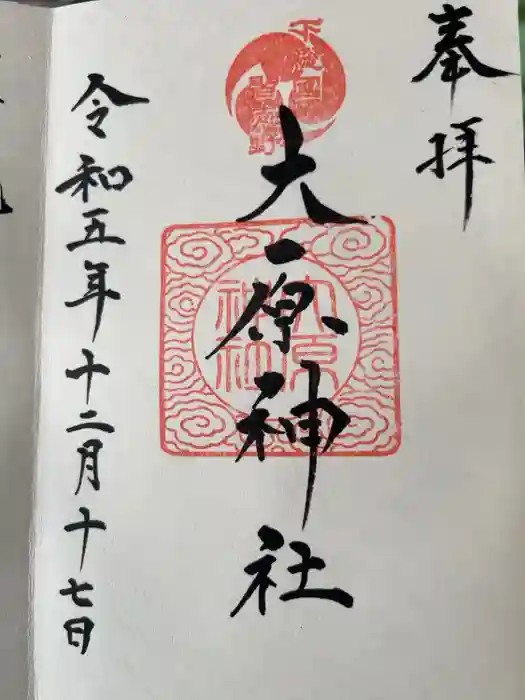 奉拝
下総国
習志野
大原神社
大原
神社
令和五年十二月十七日